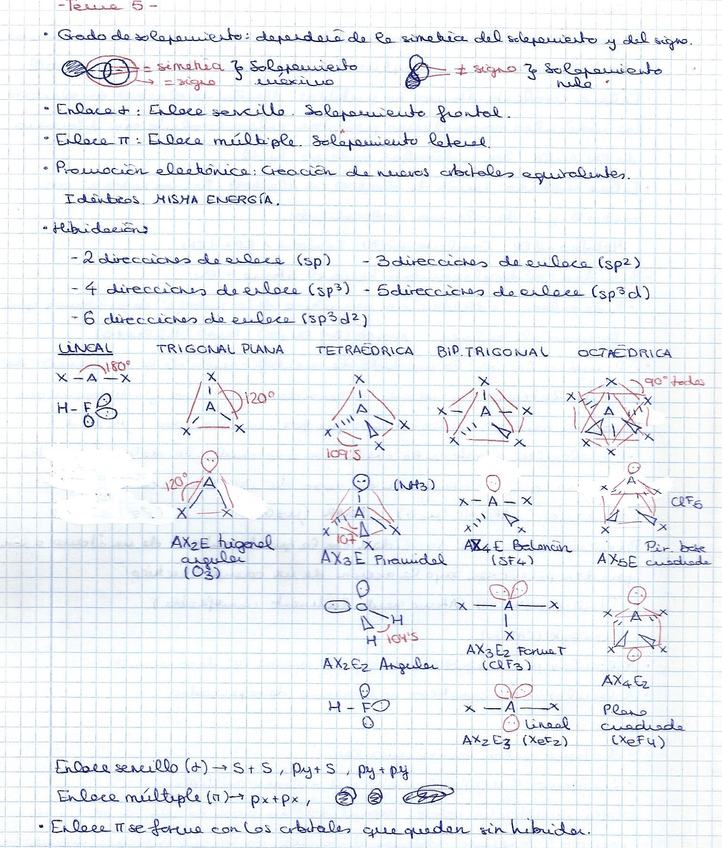 -Tema 5-
· Grado de solapamiento: dependerá de la simetría del solapamiento y del signo.
= simetría } Solapamiento
= signo máximo
≠ signo } Solapamiento
nulo.
· Enlace σ: Enlace sencillo. Solapamiento frontal.
· Enlace π: Enlace múltiple. Solapamiento lateral.
· Promoción electrónica: Creación de nuevos orbitales equivalentes.
Idénticos. MISMA ENERGÍA.
· Hibridación:
- 2 direcciones de enlace (sp) - 3 direcciones de enlace (sp²)
- 4 direcciones de enlace (sp³) - 5 direcciones de enlace (sp³d)
- 6 direcciones de enlace (sp³d²)
LINEAL TRIGONAL PLANA TETRAÉDRICA BIP. TRIGONAL OCTAÉDRICA
180°
X - A - X
H - F
X
A 120°
X X
X
A
X X X
109'5
X
X - A - X
X X
X 90° todos
X X
A
X X
X
120° A
X X
AX2E trigonal
angular
(O3)
(NH3)
A
X X X
107
AX3E Piramidal
X - A - X
X X
AX4E Balancín
(SF4)
X A X
X X
ClF5
AX5E Pir. base
cuadrada
O
H
H 104'5
AX2E2 Angular
X - A - X
X
AX3E2 Forma T
(ClF3)
X A X
X X
AX4E2
Plano
cuadrada
(XeF4)
H - F
X - A - X
Lineal
AX2E3 (XeF2)
Enlace sencillo (σ) → S+S, py+S, py+py
Enlace múltiple (π) → px+px,
· Enlace π se forma con los orbitales que quedan sin hibridar.